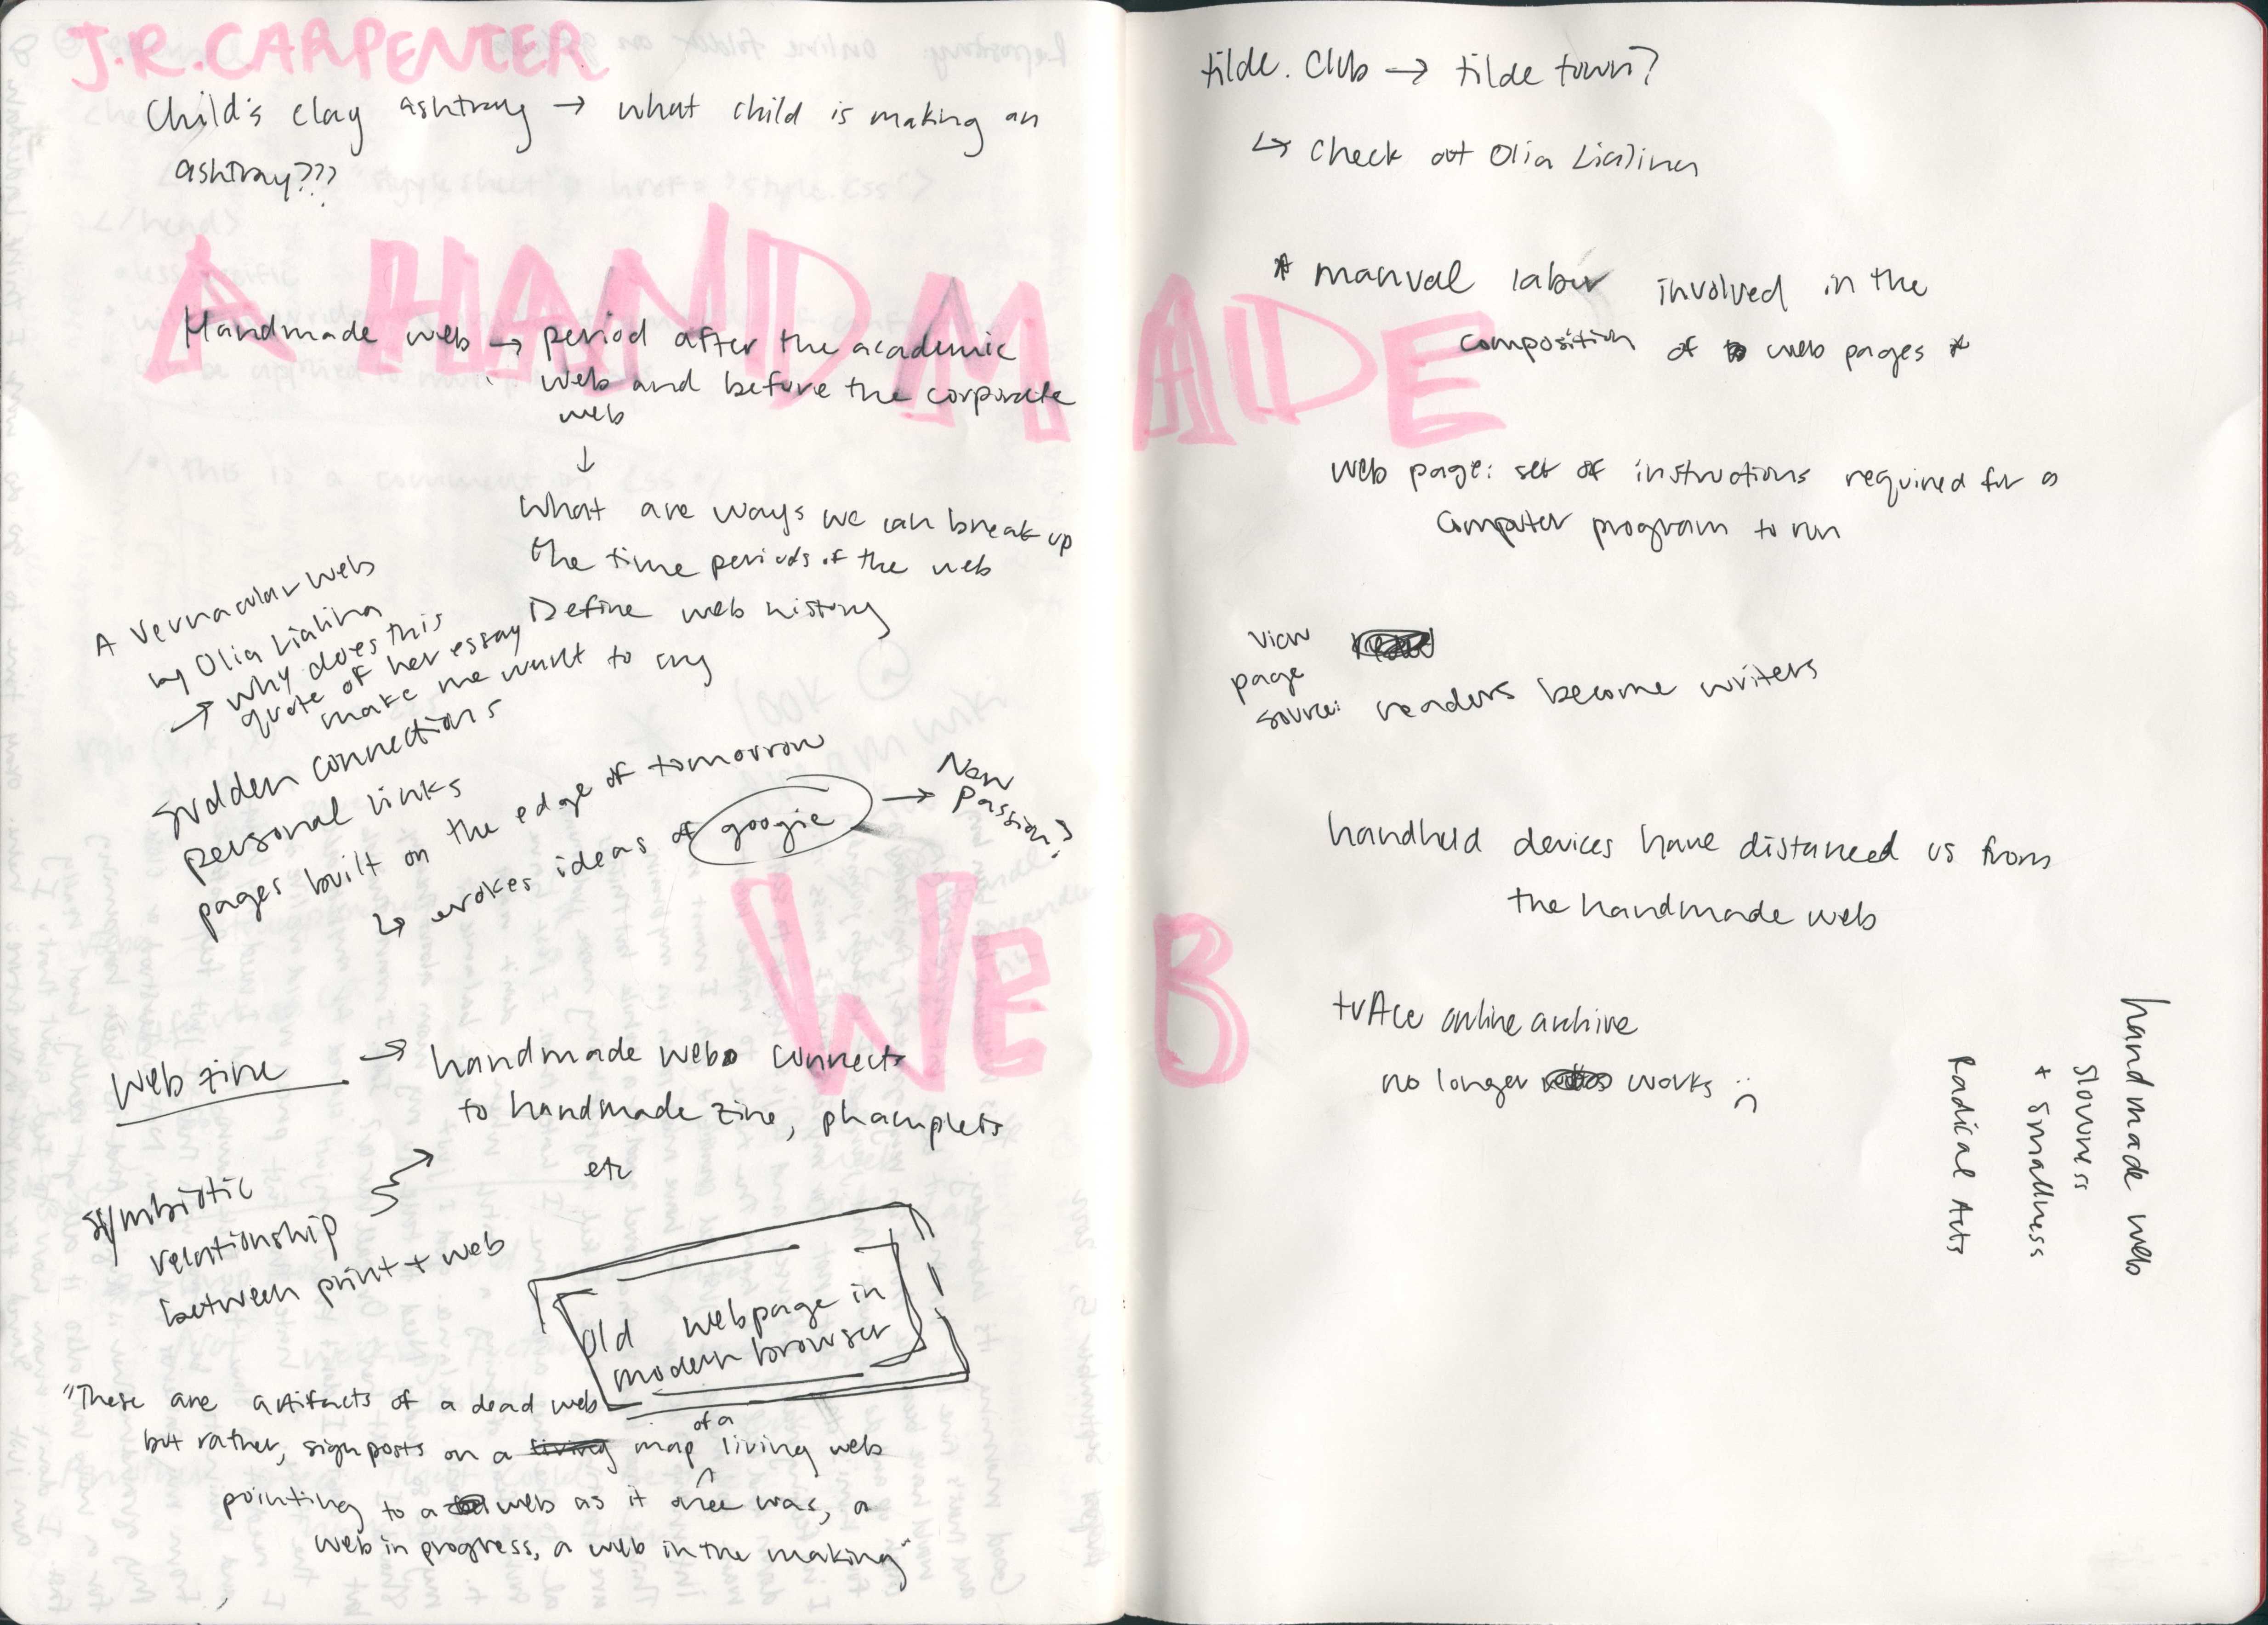 J.R. CARPENTER
Child's clay ashtray → what child is making an
ashtray???
A HANDMADE
Handmade web → period after the academic
web and before the corporate
web
↓
What are ways we can break up
the time periods of the web
Define web history
A Vernacular Web
by Olia Lialina
→ why does this
quote of her essay
make me want to cry
sudden connections
personal links
pages built on the edge of tomorrow
↳ evokes ideas of googie → New
passion?
WEB
Web zine → handmade web connects
to handmade zine, phamplets
etc
symbiotic
relationship
between print + web
old webpage in
modern browser
"These are artifacts of a dead web
but rather, signposts on a map of a living web
pointing to a web as it once was, a
web in progress, a web in the making"
tilde.club → tilde town?
↳ check out Olia Lialina
* manual labor involved in the
composition of web pages *
web page: set of instructions required for a
computer program to run
view
page
source: readers become writers
handheld devices have distanced us from
the handmade web
trAce online archive
no longer works :(
handmade web
slowness
+ smallness
Radical Acts